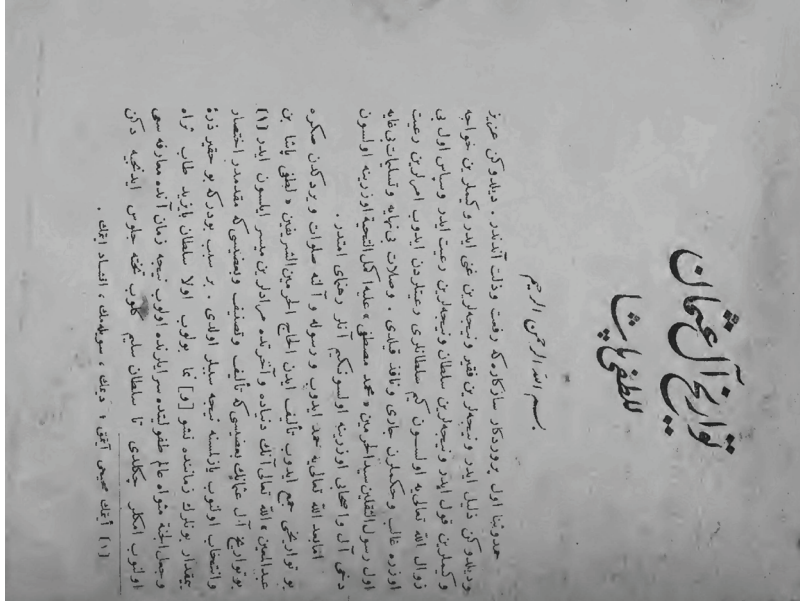 تواريخ آل عثمان
للطفى پاشا
بسم الله الرحمن الرحيم
حمد و ثنا اول پروردكار سازكاره كه رفعت وذلت آندندر . ديلدوكن عزيز
وديلدوكن ذليل ايدر ونيجه‌لرين فقير ونيجه‌لرين غنى ايدر وكيملرين خواجه
وكيملرين قول ايدر ونيجه‌لرين سلطان ونيجه‌لرين رعيت ايدر وسپاس اول بى
زوال الله تعالى‌يه اولسون كم سلطانلرى رعيتلردن ايدوب امرلرين رعيت
اوزره غالب وحكملرن جارى ونافذ قيلدى . وصلات بى نهايه وتسليمات بى غايه
اول رسول الثقلين سيد الحرمين ، محمد مصطفى ، عليه اكمل التحية اوزرينه اولسون
دخى آل واصحابى اوزرينه اولسونكيم آنلر رهنماى امتدر .
اما بعد الله تعالى‌يه حمد ايدوب ورسوله و آلنه صلوات ويردكدن صكره
بو تواريخى جمع ايدوب تأليف ايدن الحاج الحرمين الشريفين ، لطفى پاشا بن
عبد المعين ، الله تعالى آنك دنياده و آخرتده مرادلرين ميسر ايلسون ايدر (١)
بو تواريخ آل عثمانك بعضيسى كه تأليف وتصنيف وبعضيسى كه مقدمدر اختصار
وانتخاب اولنوب يازلسنه نيجه سبيلر اولدى . بر سبب بودر كه بو حقير ذرهٔ
بيمقدار بونلرك زماننده نشو [و] نما بولوب اولا سلطان بايزيد طاب ثراه
وجعل الجنة مثواه عالم طفوليتده سرايلرنده اولوب نيجه زمان آنده معارفه سعى
اولنوب امكلر چكلدى تا سلطان سليم كلوب تخته جلوس ايدنجيه دكن
(١) أيتمك صحيحى آيتمق ، ديمك ، سويله‌مك ، افساد ايتمك .